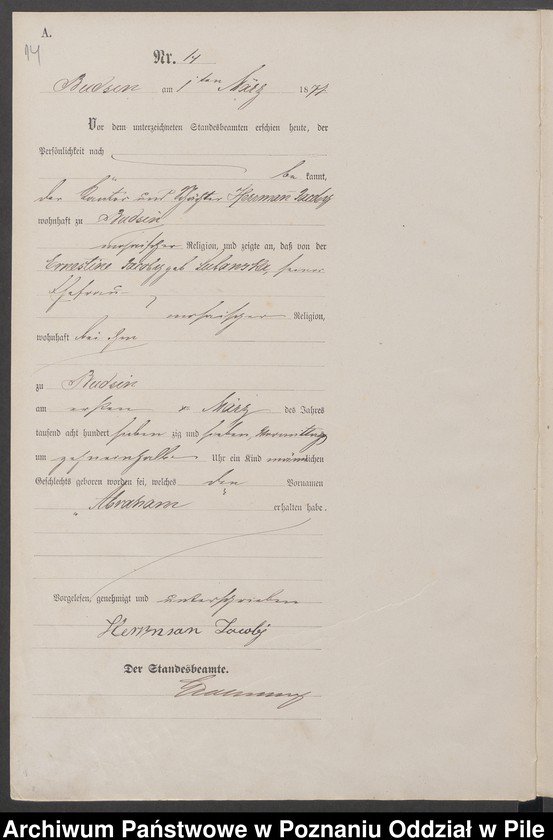 A.
14
Nr. 14
Budsin am 1ten März 1877
Vor dem unterzeichneten Standesbeamten erschien heute, der
Persönlichkeit nach
be kannt,
der Kantor und Schächter Hermann Jacoby
wohnhaft zu Budsin
mosaischer Religion, und zeigte an, daß von der
Ernestine Jacoby geb. seiner
Ehefrau
mosaischer Religion,
wohnhaft bei ihm
zu Budsin
am ersten März des Jahres
tausend acht hundert sieben zig und sieben, Vormittags
um zehneinhalb Uhr ein Kind männlichen
Geschlechts geboren worden sei, welches den Vornamen
"Abraham" erhalten habe.
Vorgelesen, genehmigt und unterschrieben
Hermann Jacoby
Der Standesbeamte.
Archiwum Państwowe w Poznaniu Oddział w Pile